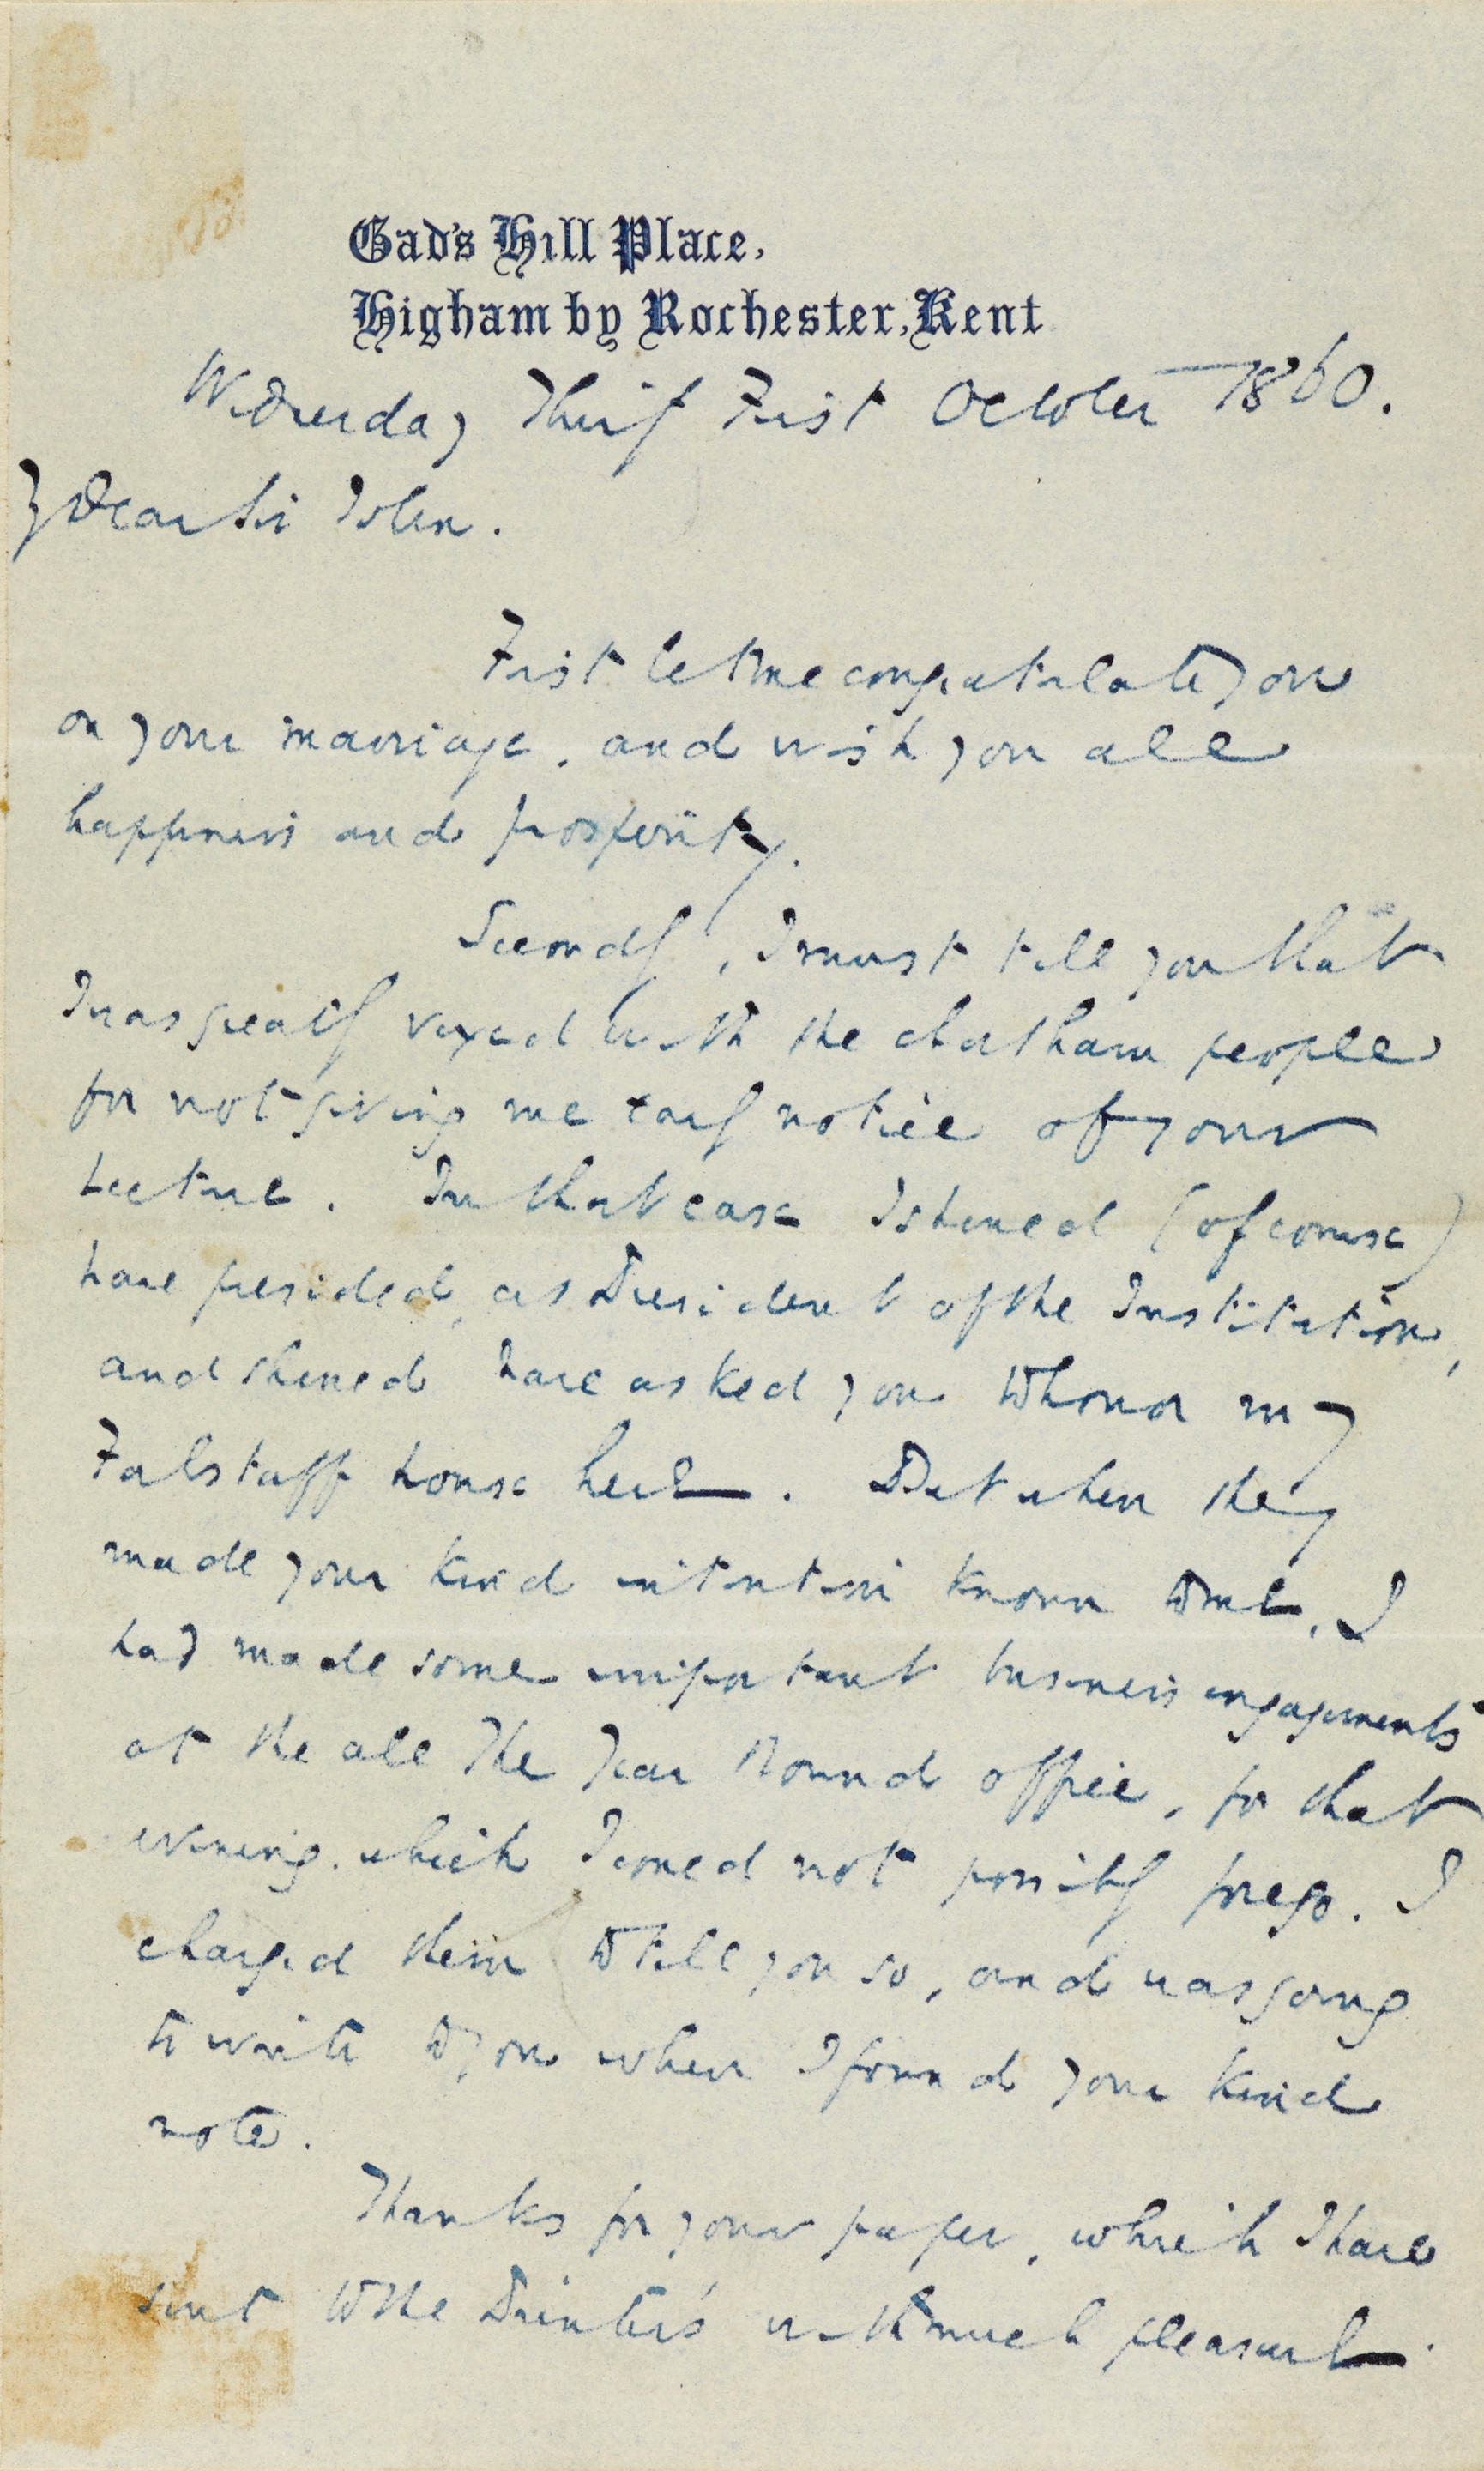 Gad's Hill Place,
Higham by Rochester, Kent
Wednesday Thirty First October 1860.
My Dear Sir John.
First let me congratulate you
on your marriage, and wish you all
happiness and prosperity.
Secondly, I must tell you that
I was greatly vexed with the Chatham people
for not giving me early notice of your
Lecture. In that case I should (of course)
have presided, as President of the Institution,
and should have asked you to honor my
Falstaff house here. But when they
made your kind intention known to me, I
had made some important business engagements
at the All The Year Round office, for that
evening, which I could not possibly forego. I
charged them to tell you so, and was going
to write to you when I found your kind
note.
Thanks for your paper, which I have
sent to the Printer's with much pleasure.